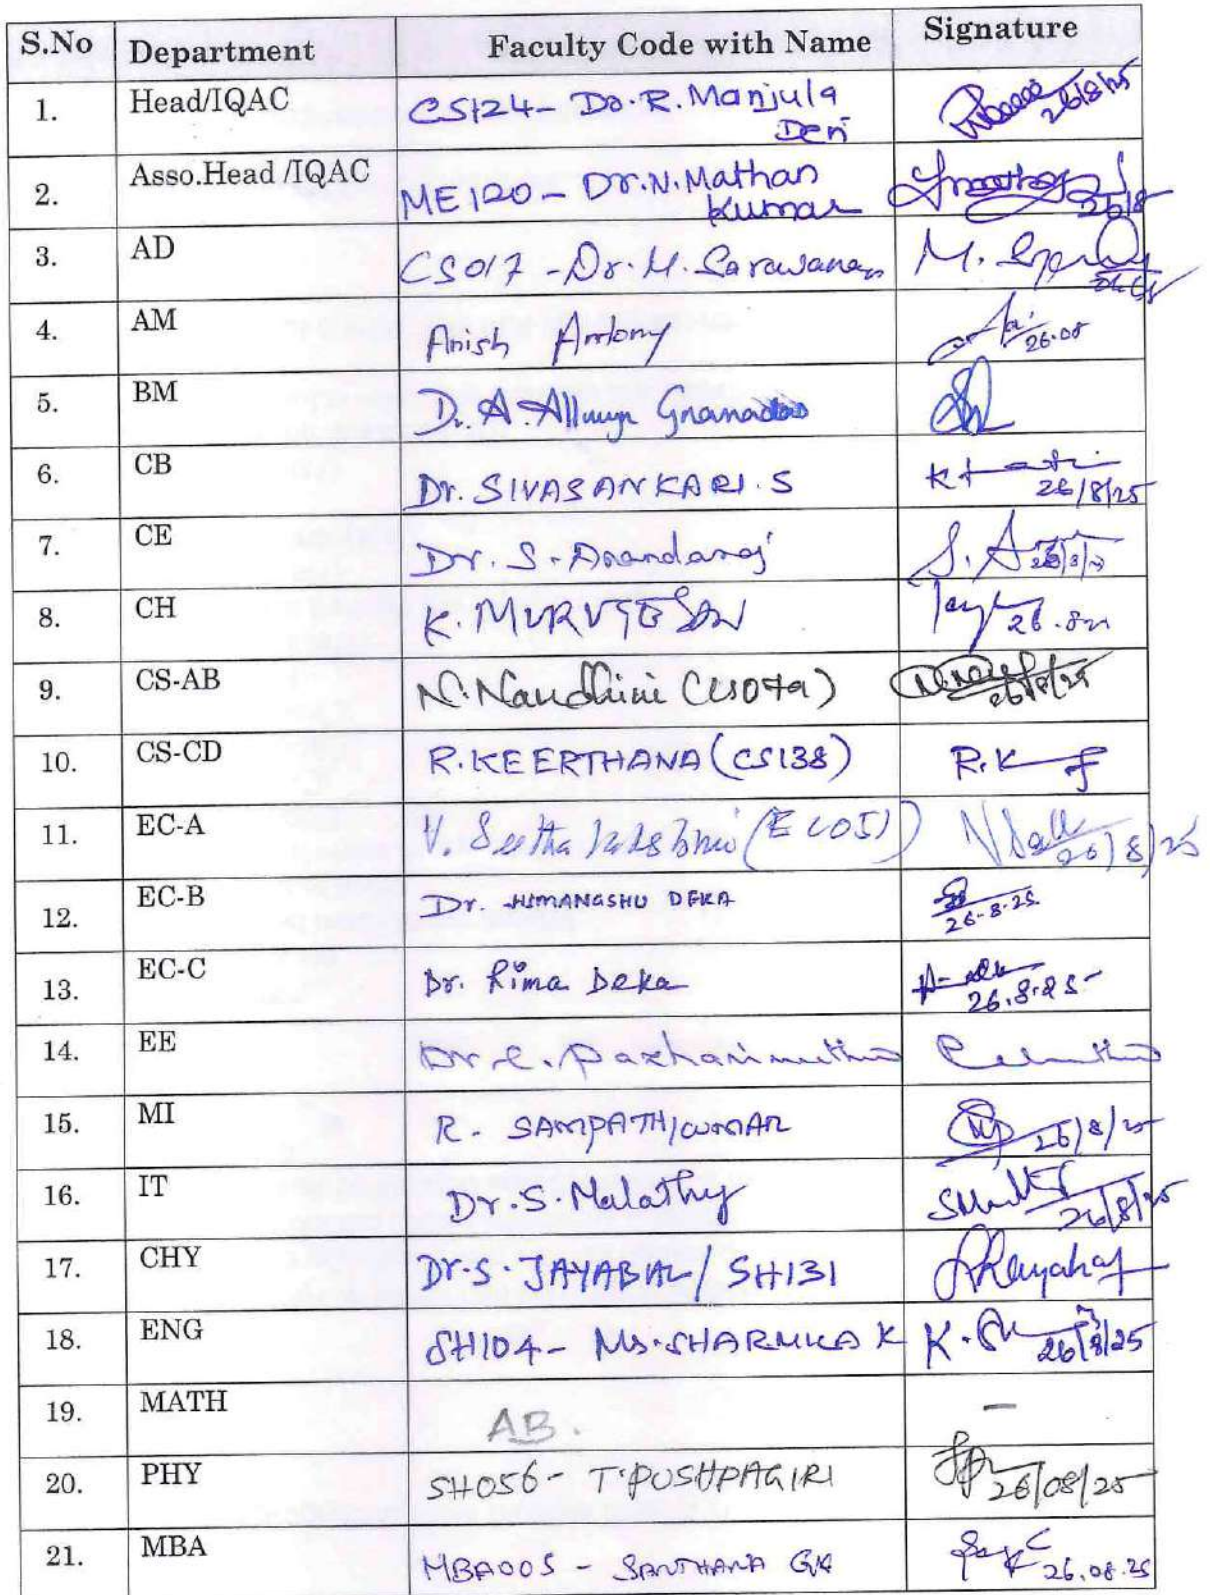 S.No Department Faculty Code with Name Signature
1. Head/IQAC CS124- Dr. R. Manjula 26/8/25
Devi
2. Asso.Head /IQAC ME120 - Dr. N. Mathan
Kumar 26/8
3. AD CS017 - Dr. M. Saravanan M.
4. AM Anish Antony 26.08
5. BM D. A. Gnanadas
6. CB Dr. SIVASANKARI. S 26/8/25
7. CE Dr. S. Anandaraj S. A
8. CH K. MURUGESAN 26.8.25
9. CS-AB N. Nandhini 26/8/25
10. CS-CD R. KEERTHANA (CS138) R.K
11. EC-A V. Seetha lakshmi (EC051) 26/8/25
12. EC-B Dr. HIMANGSHU DEKA 26-8-25
13. EC-C Dr. Rima Deka 26.8.25
14. EE Dr. C. Pazhanimuthu
15. MI R. SAMPATHKUMAR 26/8/25
16. IT Dr. S. Malathy 26/8/25
17. CHY Dr. S. JAYABAL / SH131
18. ENG SH104 - Ms. SHARMILA K K. 26/8/25
19. MATH AB. -
20. PHY SH056 - T. PUSHPAGIRI 26/08/25
21. MBA MBA005 - SANTHANA 26.08.25